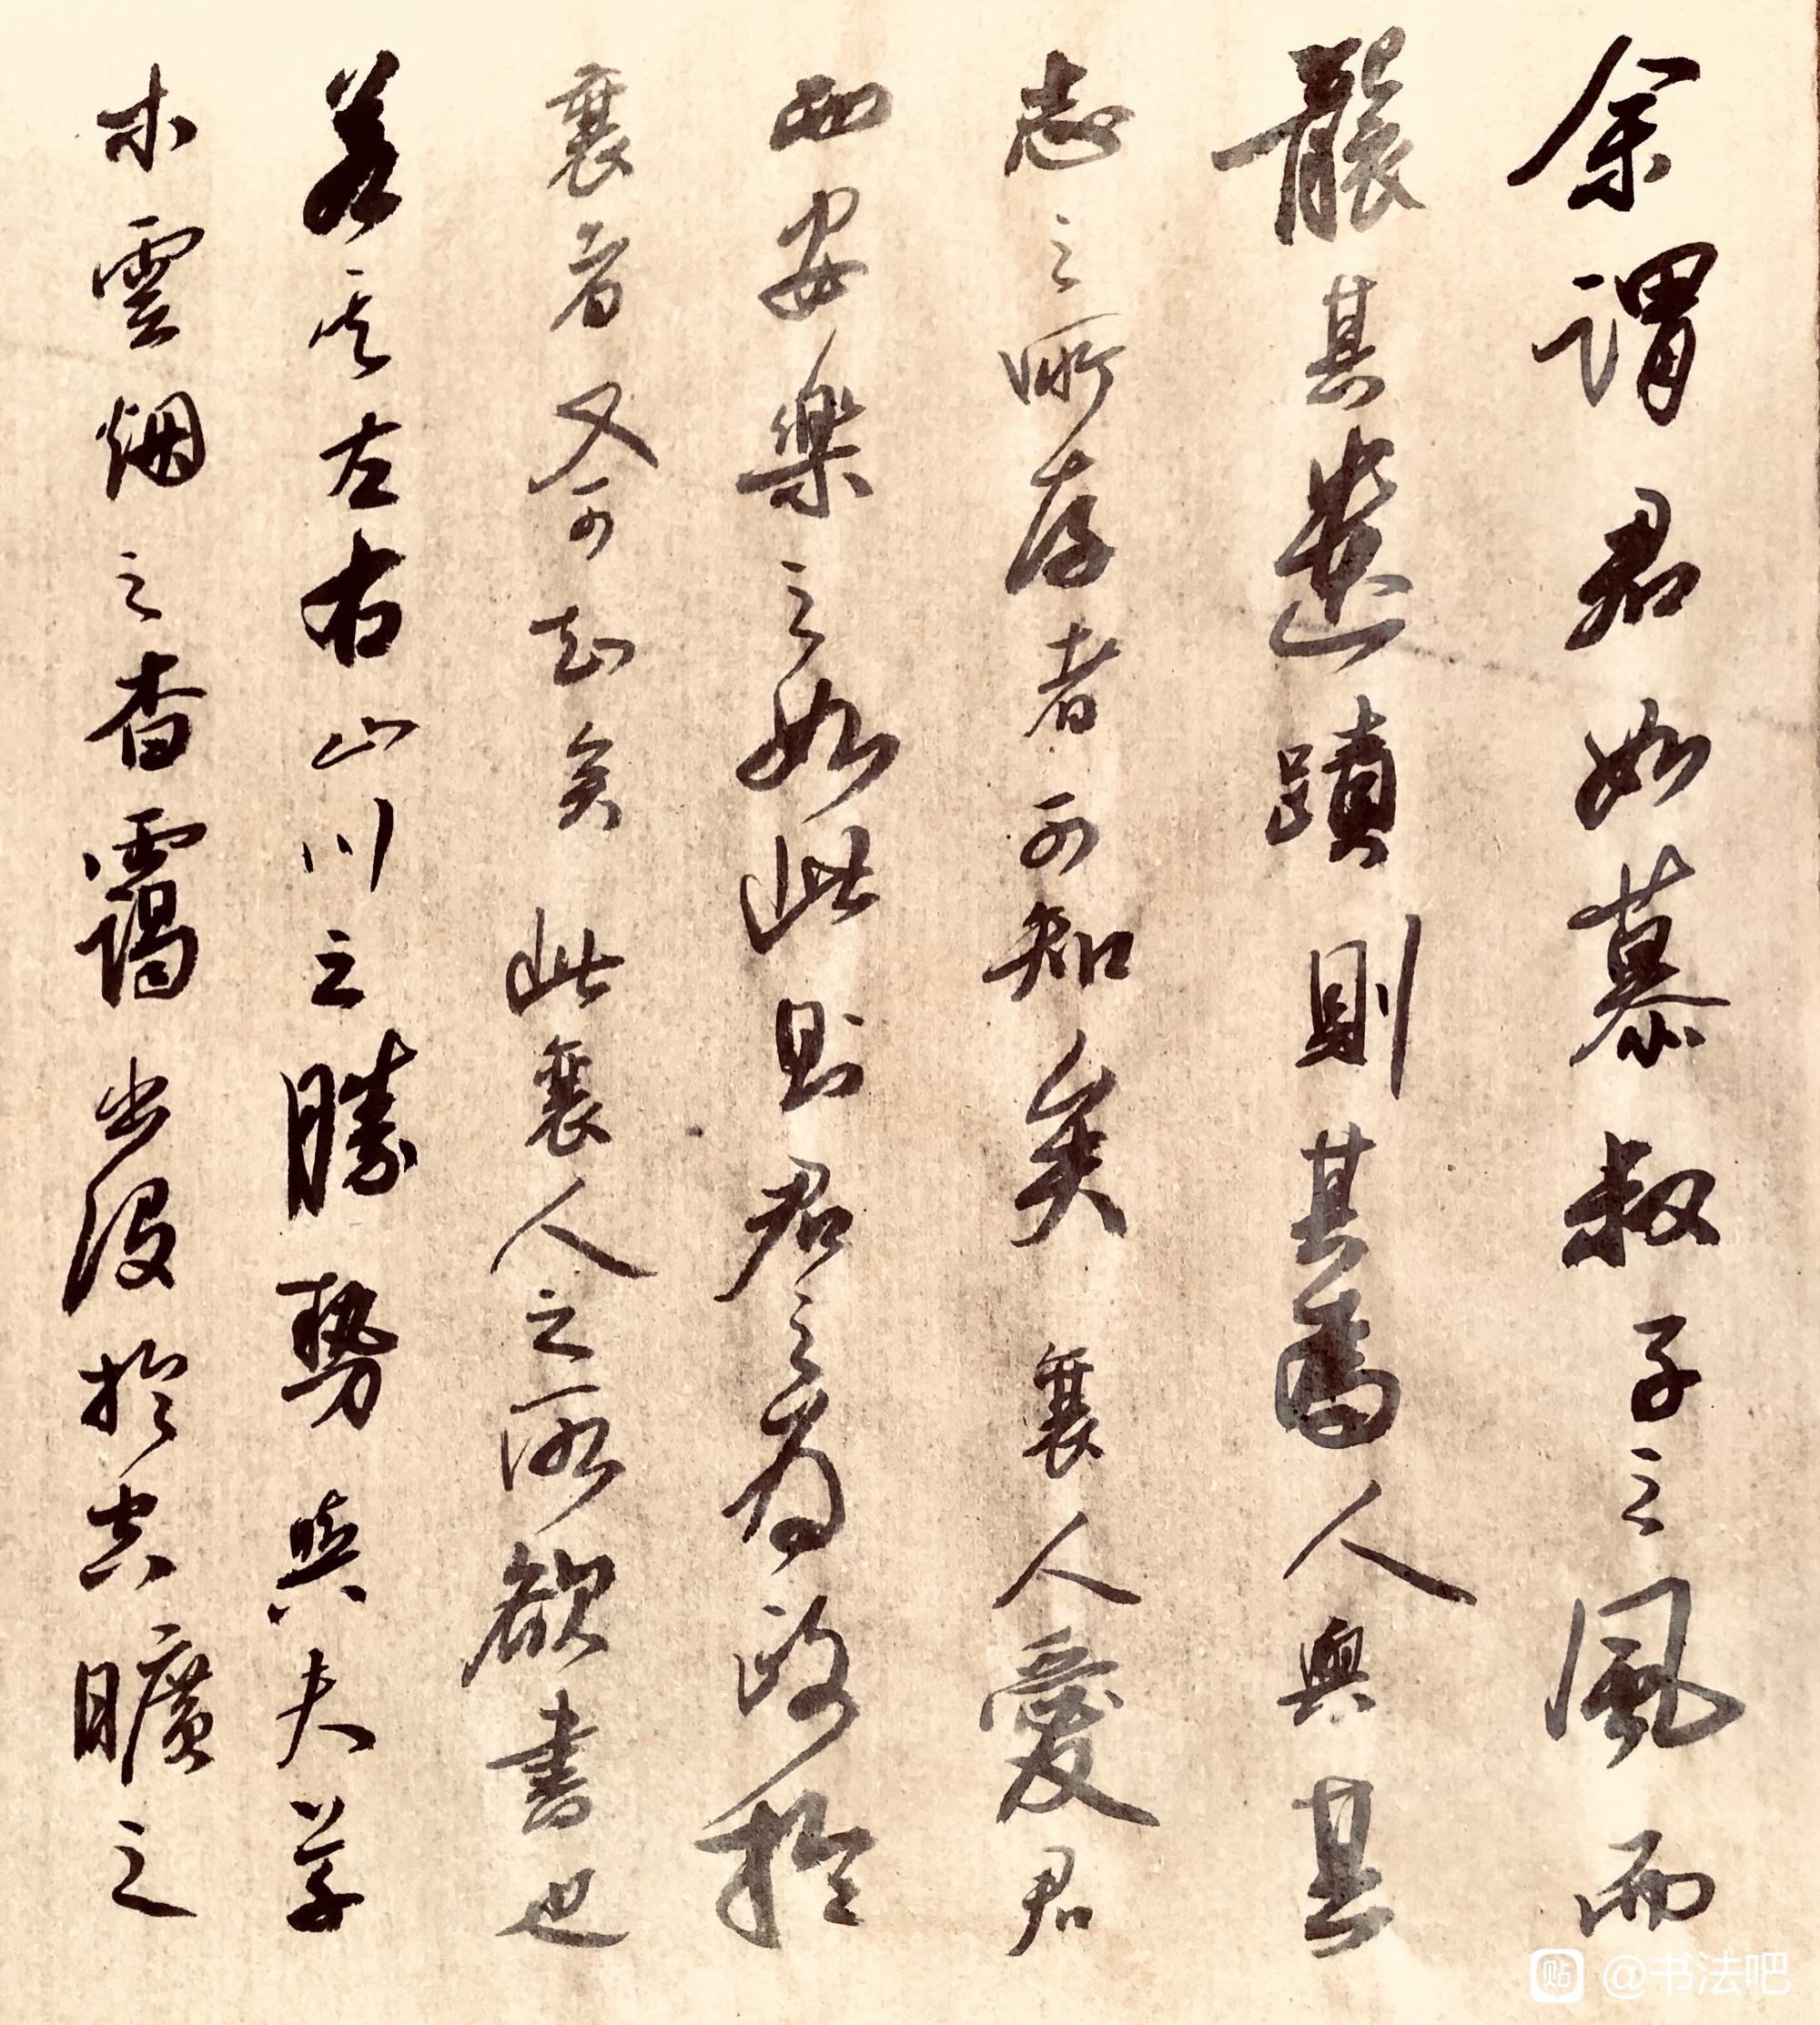 余謂君如慕叔子之風而
襲其遺蹟則其爲人與其
志之所存者可知矣襄人愛君
而安樂之如此則君之爲政於
襄者又可知矣此襄人之所欲書也
若其左右山川之勝勢與夫草
木雲烟之杳靄出没於空曠之
贴 @书法吧